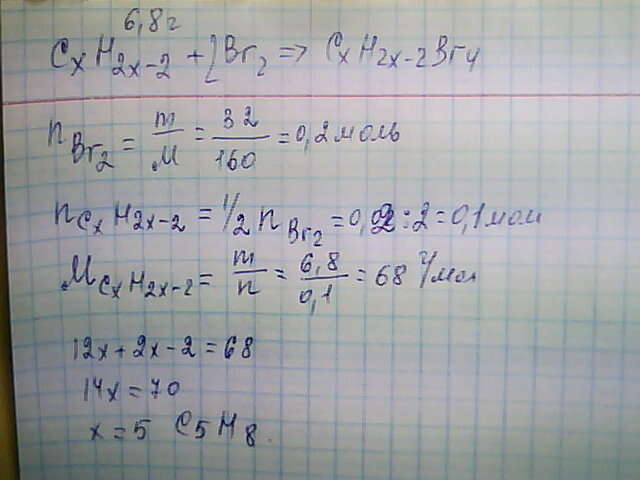 6,8 г
CxH2x-2 + 2Br2 => CxH2x-2Br4
nBr2 = m/M = 32/160 = 0,2 моль
nCxH2x-2 = 1/2 nBr2 = 0,2 : 2 = 0,1 мол
MCxH2x-2 = m/n = 6,8/0,1 = 68 г/мол
12x + 2x - 2 = 68
14x = 70
x = 5 C5H8.